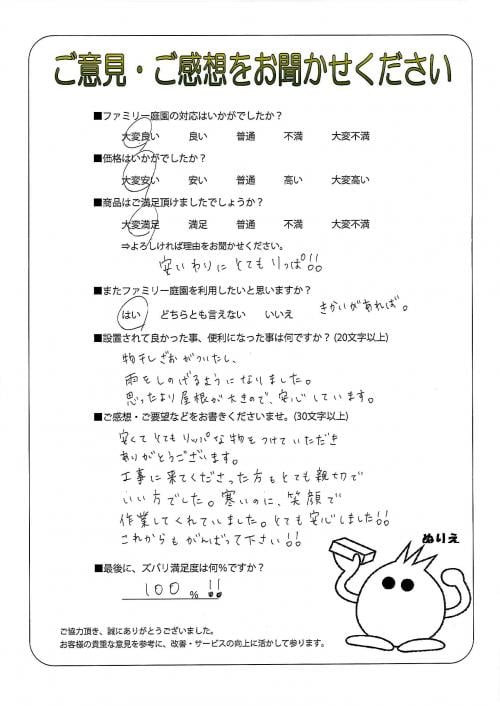 ご意見・ご感想をお聞かせください
■ファミリー庭園の対応はいかがでしたか？
大変良い 良い 普通 不満 大変不満
■価格はいかがでしたか？
大変安い 安い 普通 高い 大変高い
■商品はご満足頂けましたでしょうか？
大変満足 満足 普通 不満 大変不満
⇒よろしければ理由をお聞かせください。
安いわりにとてもりっぱ!!
■またファミリー庭園を利用したいと思いますか？
はい どちらとも言えない いいえ きかいがあれば。
■設置されて良かった事、便利になった事は何ですか？(20文字以上)
物干しざおがついたし、
雨をしのげるようになりました。
思ったより屋根が大きので、安心しています。
■ご感想・ご要望などをお書きくださいませ。(30文字以上)
安くてとてもリッパな物をつけていただき
ありがとうございます。
工事に来てくださった方もとても親切で
いい方でした。寒いのに、笑顔で
作業してくれていました。とても安心しました!!
これからもがんばって下さい!!
ぬりえ
■最後に、ズバリ満足度は何％ですか？
100 % !!
ご協力頂き、誠にありがとうございました。
お客様の貴重な意見を参考に、改善・サービスの向上に活かして参ります。